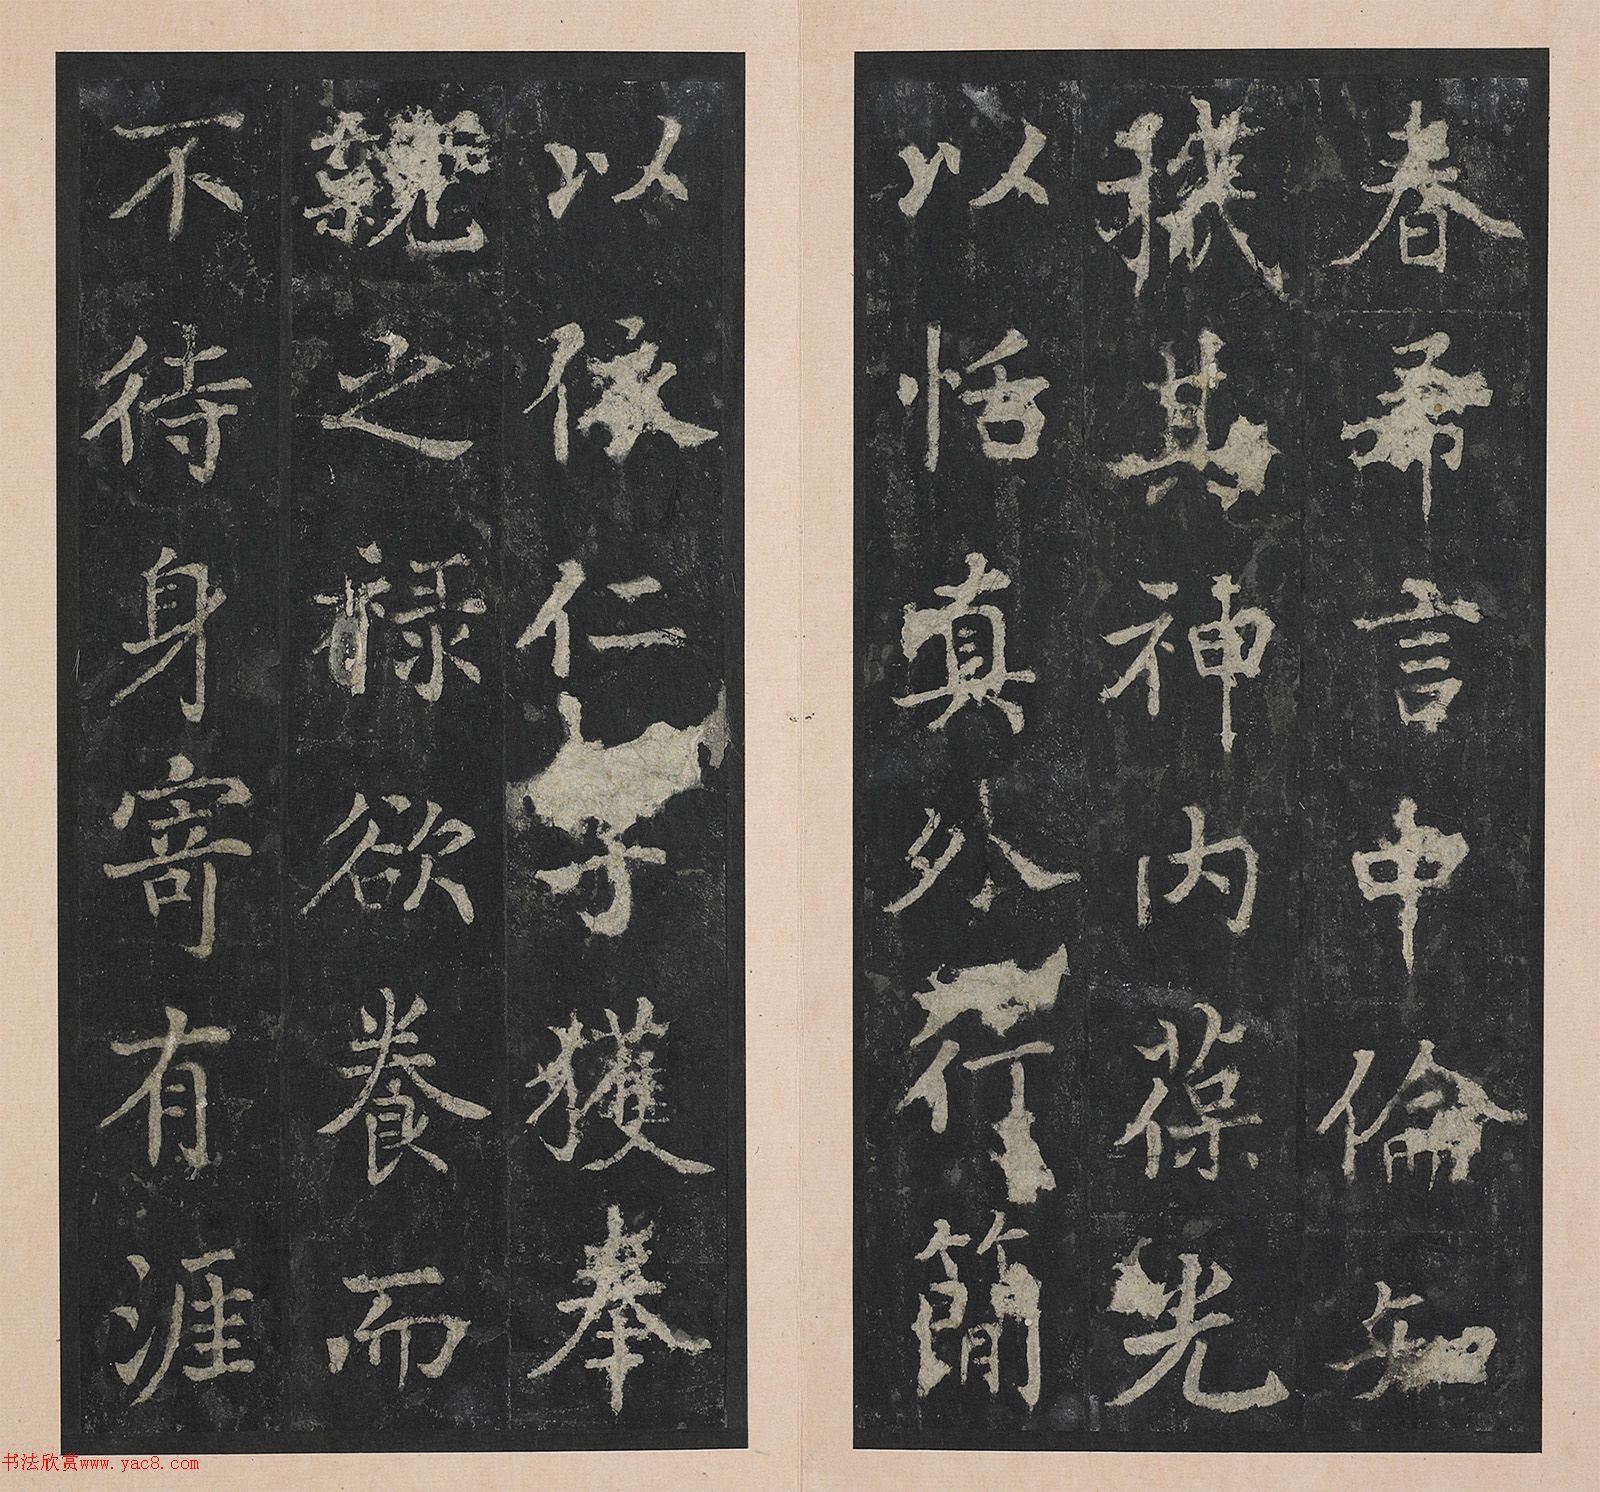 春希言中倫知
機其神内葆光
以恬真外行簡
以依仁子獲奉
親之祿欲養而
不待身寄有涯
书法欣赏www.yac8.com